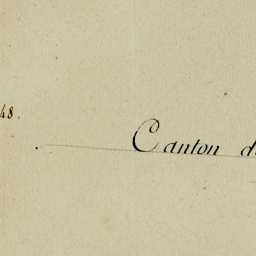 48.
Canton d